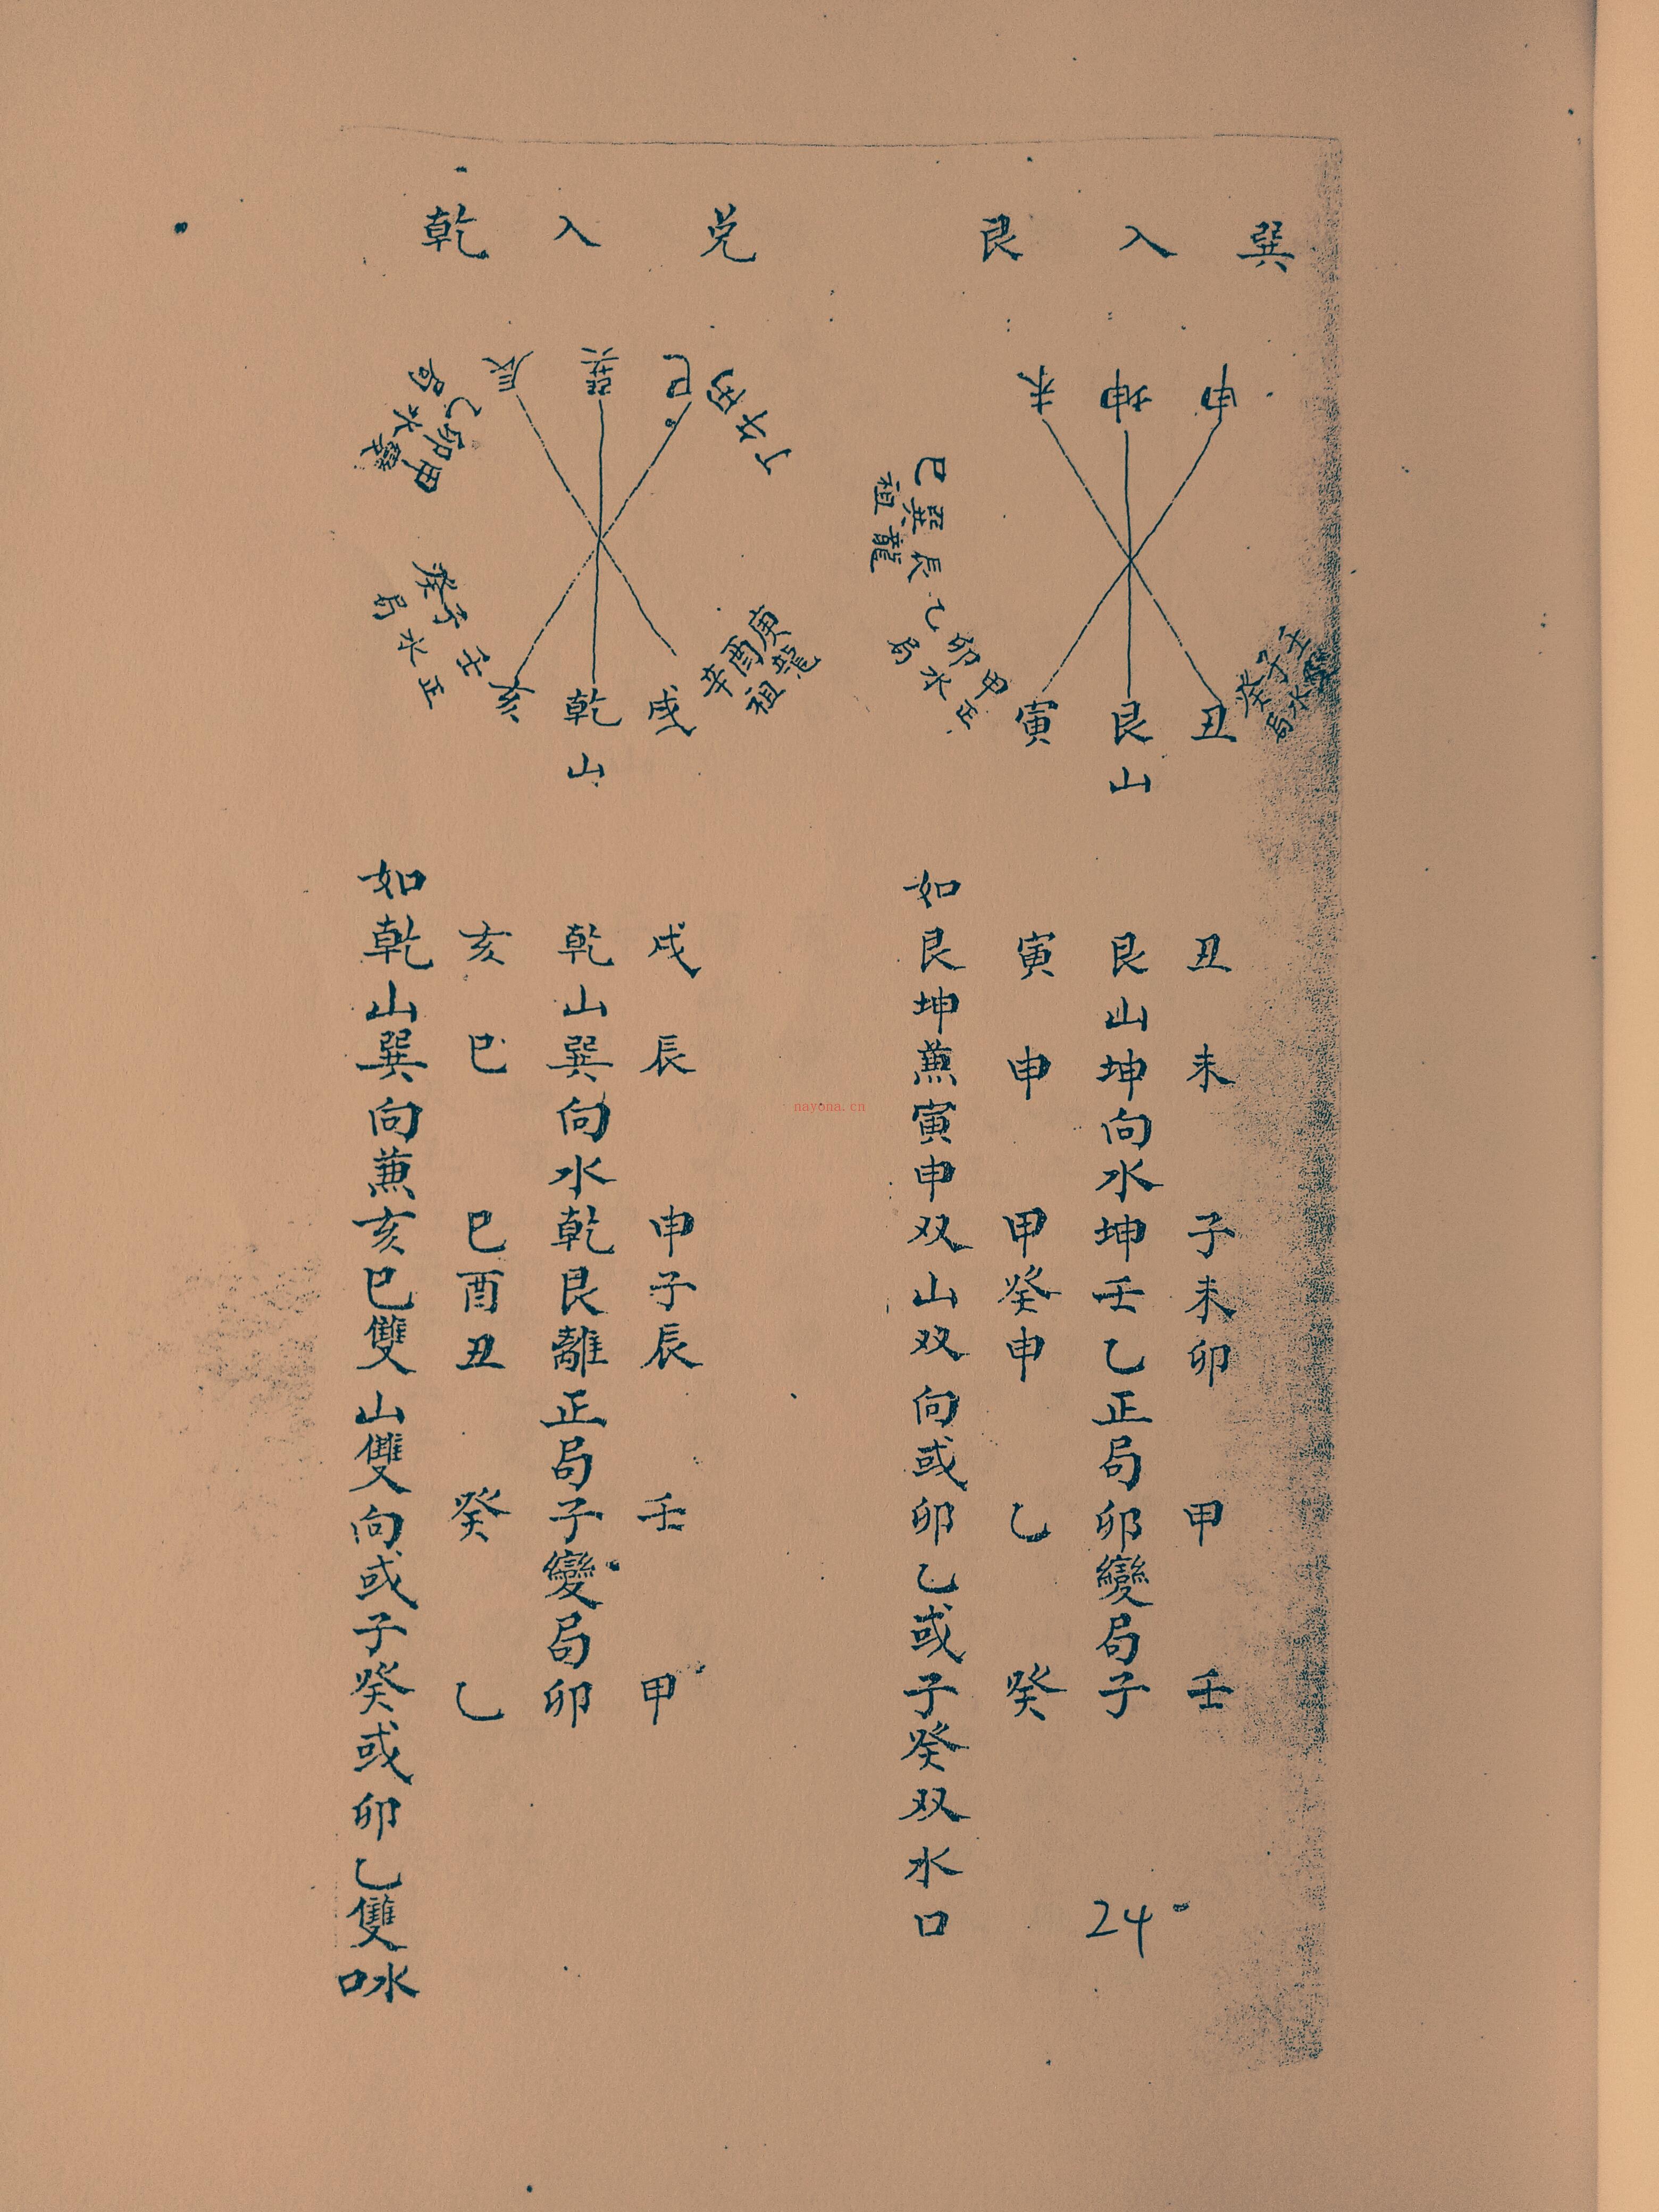 巽入艮
申
坤
未
壬子癸
水局
丑
艮山
寅
甲卯乙辰巽巳
正水局
祖龍
丑未子未卯甲壬
艮山坤向水坤壬乙正局卯變局子
寅申甲癸申乙癸
如艮坤蕪寅申双山双向或卯乙或子癸双水口
24
兌入乾
丁午丙
巳
巽
辰
乙卯甲
變水局
庚酉辛
祖龍
戌
乾山
亥
壬子癸
正水局
戌辰申子辰壬甲
乾山巽向水乾艮離正局子變局卯
亥巳巳酉丑癸乙
如乾山巽向蕪亥巳雙山雙向或子癸或卯乙雙水口
nayona.cn